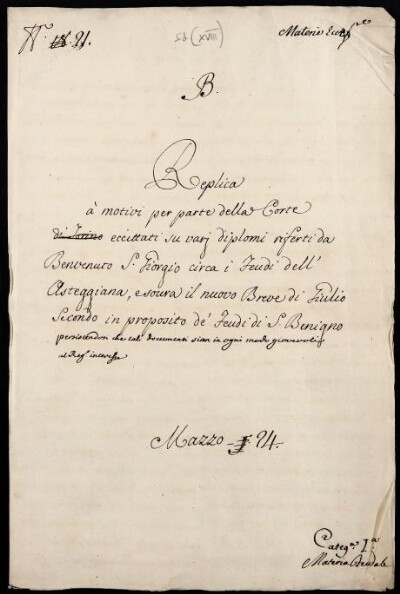 N.° 18. 21.
(XVIII)
Materie Eccl.
B.
Replica
à motivi per parte della Corte
di Torino eccittati su varj diplomi riferti da
Benvenuto S. Giorgio circa i Feudi dell'
Asteggiana, e soura il nuovo Breve di Giulio
Secondo in proposito de' Feudi di S. Benigno
che tali documenti sian in ogni modo giovevoli
al Reg.° interesse
Mazzo 24.
Categ.a I.a
Materia Feudale